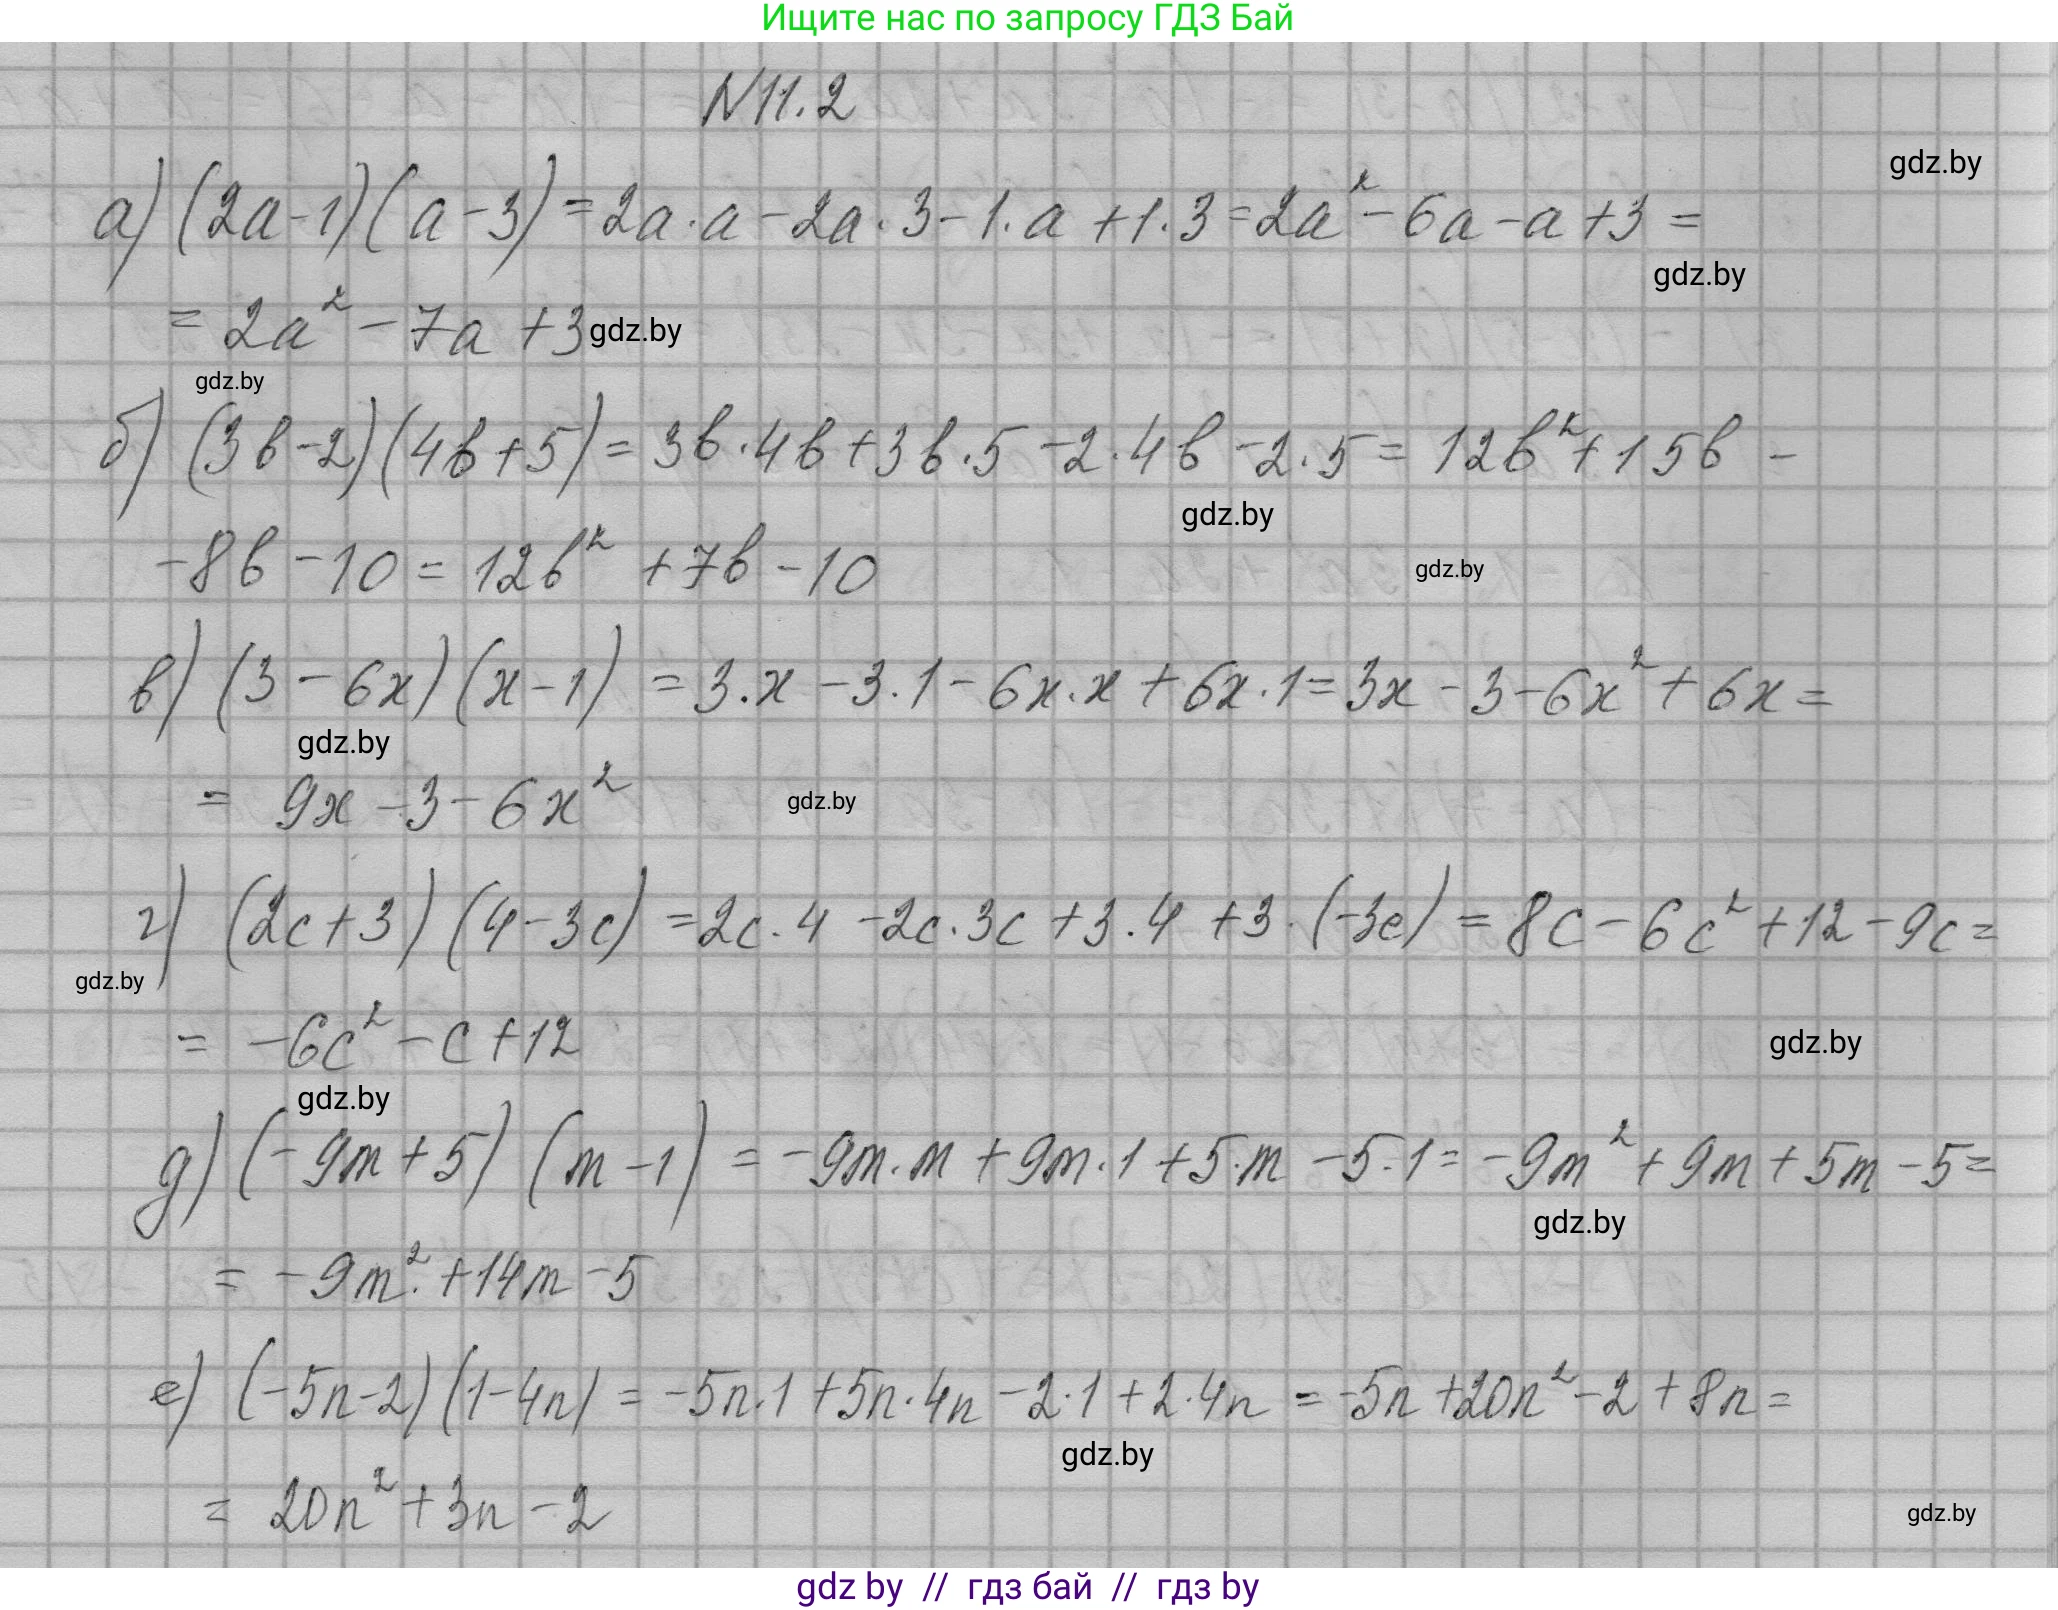 Ищите нас по запросу ГДЗ Бай
N11.2
gdz.by
а) (2a-1)(a-3)=2a·a-2a·3-1·a+1·3=2a²-6a-a+3=
gdz.by
=2a²-7a+3 gdz.by
gdz.by
б) (3b-2)(4b+5)=3b·4b+3b·5-2·4b-2·5=12b²+15b-
gdz.by
-8b-10=12b²+7b-10
gdz.by
в) (3-6x)(x-1)=3·x-3·1-6x·x+6x·1=3x-3-6x²+6x=
gdz.by
=9x-3-6x²
gdz.by
г) (2c+3)(4-3c)=2c·4-2c·3c+3·4+3·(-3c)=8c-6c²+12-9c=
gdz.by
=-6c²-c+12
gdz.by
gdz.by
д) (-9m+5)(m-1)=-9m·m+9m·1+5·m-5·1=-9m²+9m+5m-5=
gdz.by
=-9m²+14m-5
е) (-5n-2)(1-4n)=-5n·1+5n·4n-2·1+2·4n=-5n+20n²-2+8n=
gdz.by
=20n²+3n-2
gdz.by
gdz by // гдз бай // гдз by